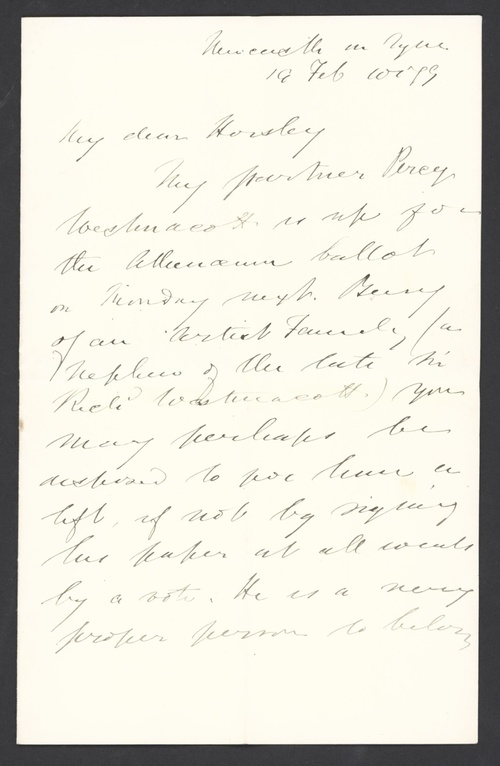 Newcastle on Tyne
19 Feb
My dear Horsley
My partner Percy
Westmacott is up for
the Athenæum ballot
on Monday next. Being
of an Artist Family, (a
nephew of the late Sir
Richd Westmacott) you
may perhaps be
disposed to give him a
lift, if not by signing
his paper at all events
by a vote. He is a very
proper person to belong